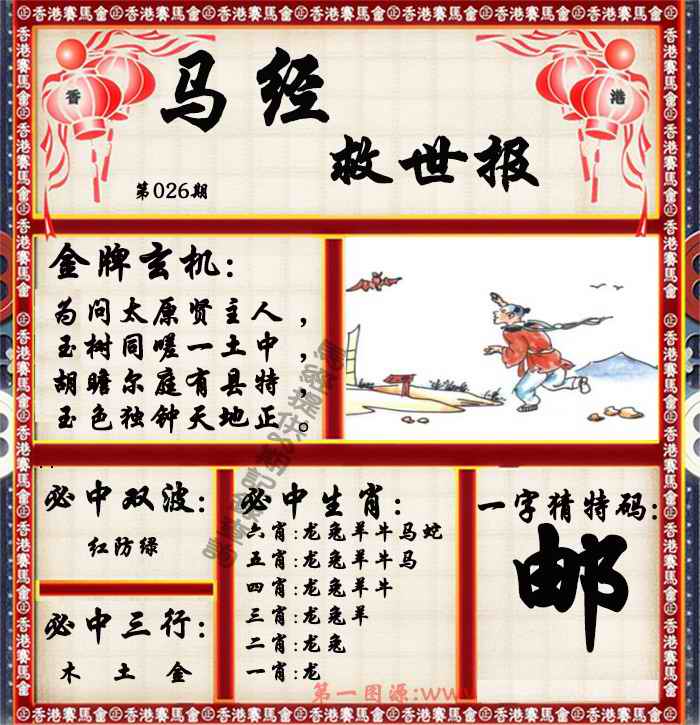 香港賽馬會
香 港
马经
救世报
第026期
金牌玄机:
为问太原贤主人，
玉树同嗟一土中，
胡瞻尔庭有县特，
玉色独钟天地正。
必中双波:
红防绿
必中三行:
木 土 金
必中生肖:
六肖:龙兔羊牛马蛇
五肖:龙兔羊牛马
四肖:龙兔羊牛
三肖:龙兔羊
二肖:龙兔
一肖:龙
一字猜特码:
邮
第一图源:www